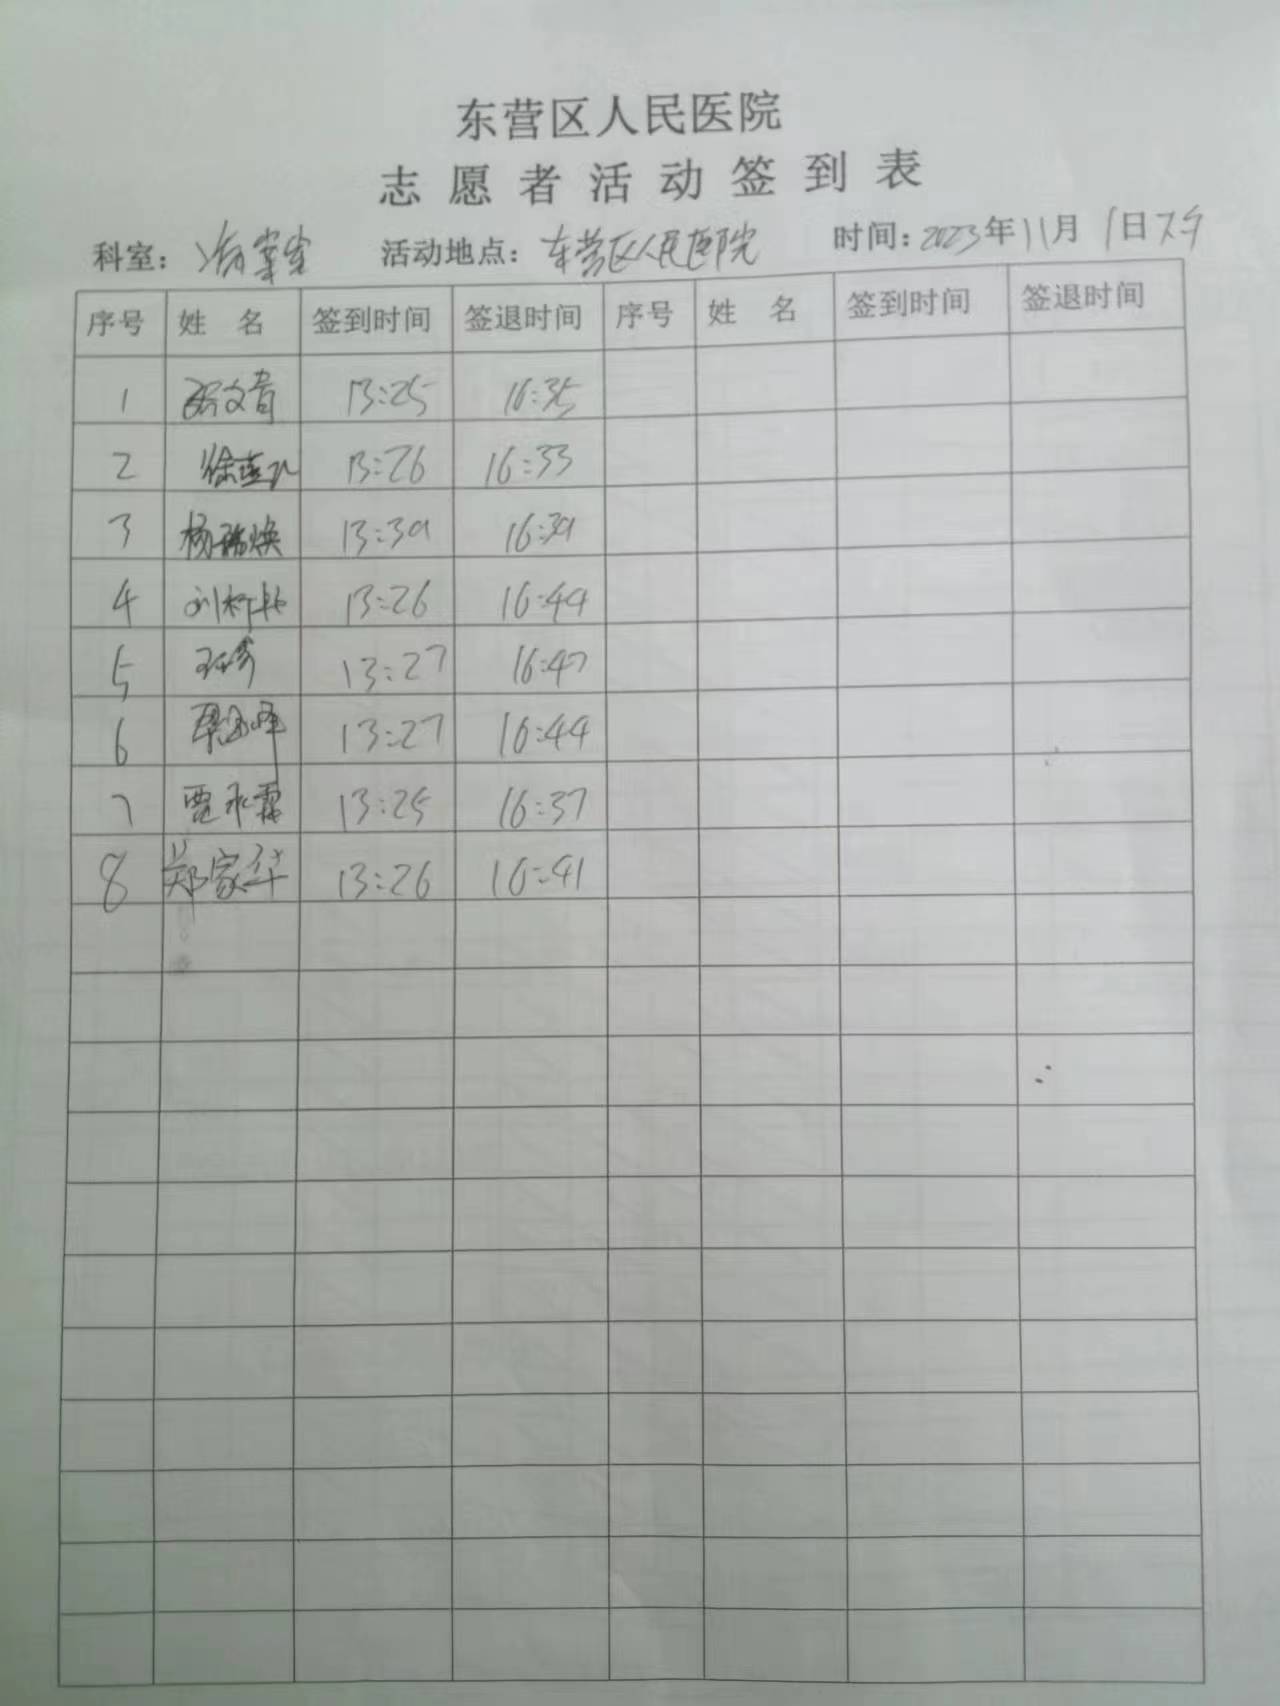 东营区人民医院
志愿者活动签到表
科室：病案室 活动地点：东营区人民医院 时间：2023年11月1日下午
序号 姓名 签到时间 签退时间 序号 姓名 签到时间 签退时间
1 13:25 16:35
2 13:26 16:33
3 13:39 16:39
4 刘 13:26 16:44
5 13:27 16:47
6 13:27 16:44
7 贾永霖 13:25 16:37
8 郑家华 13:26 16:41